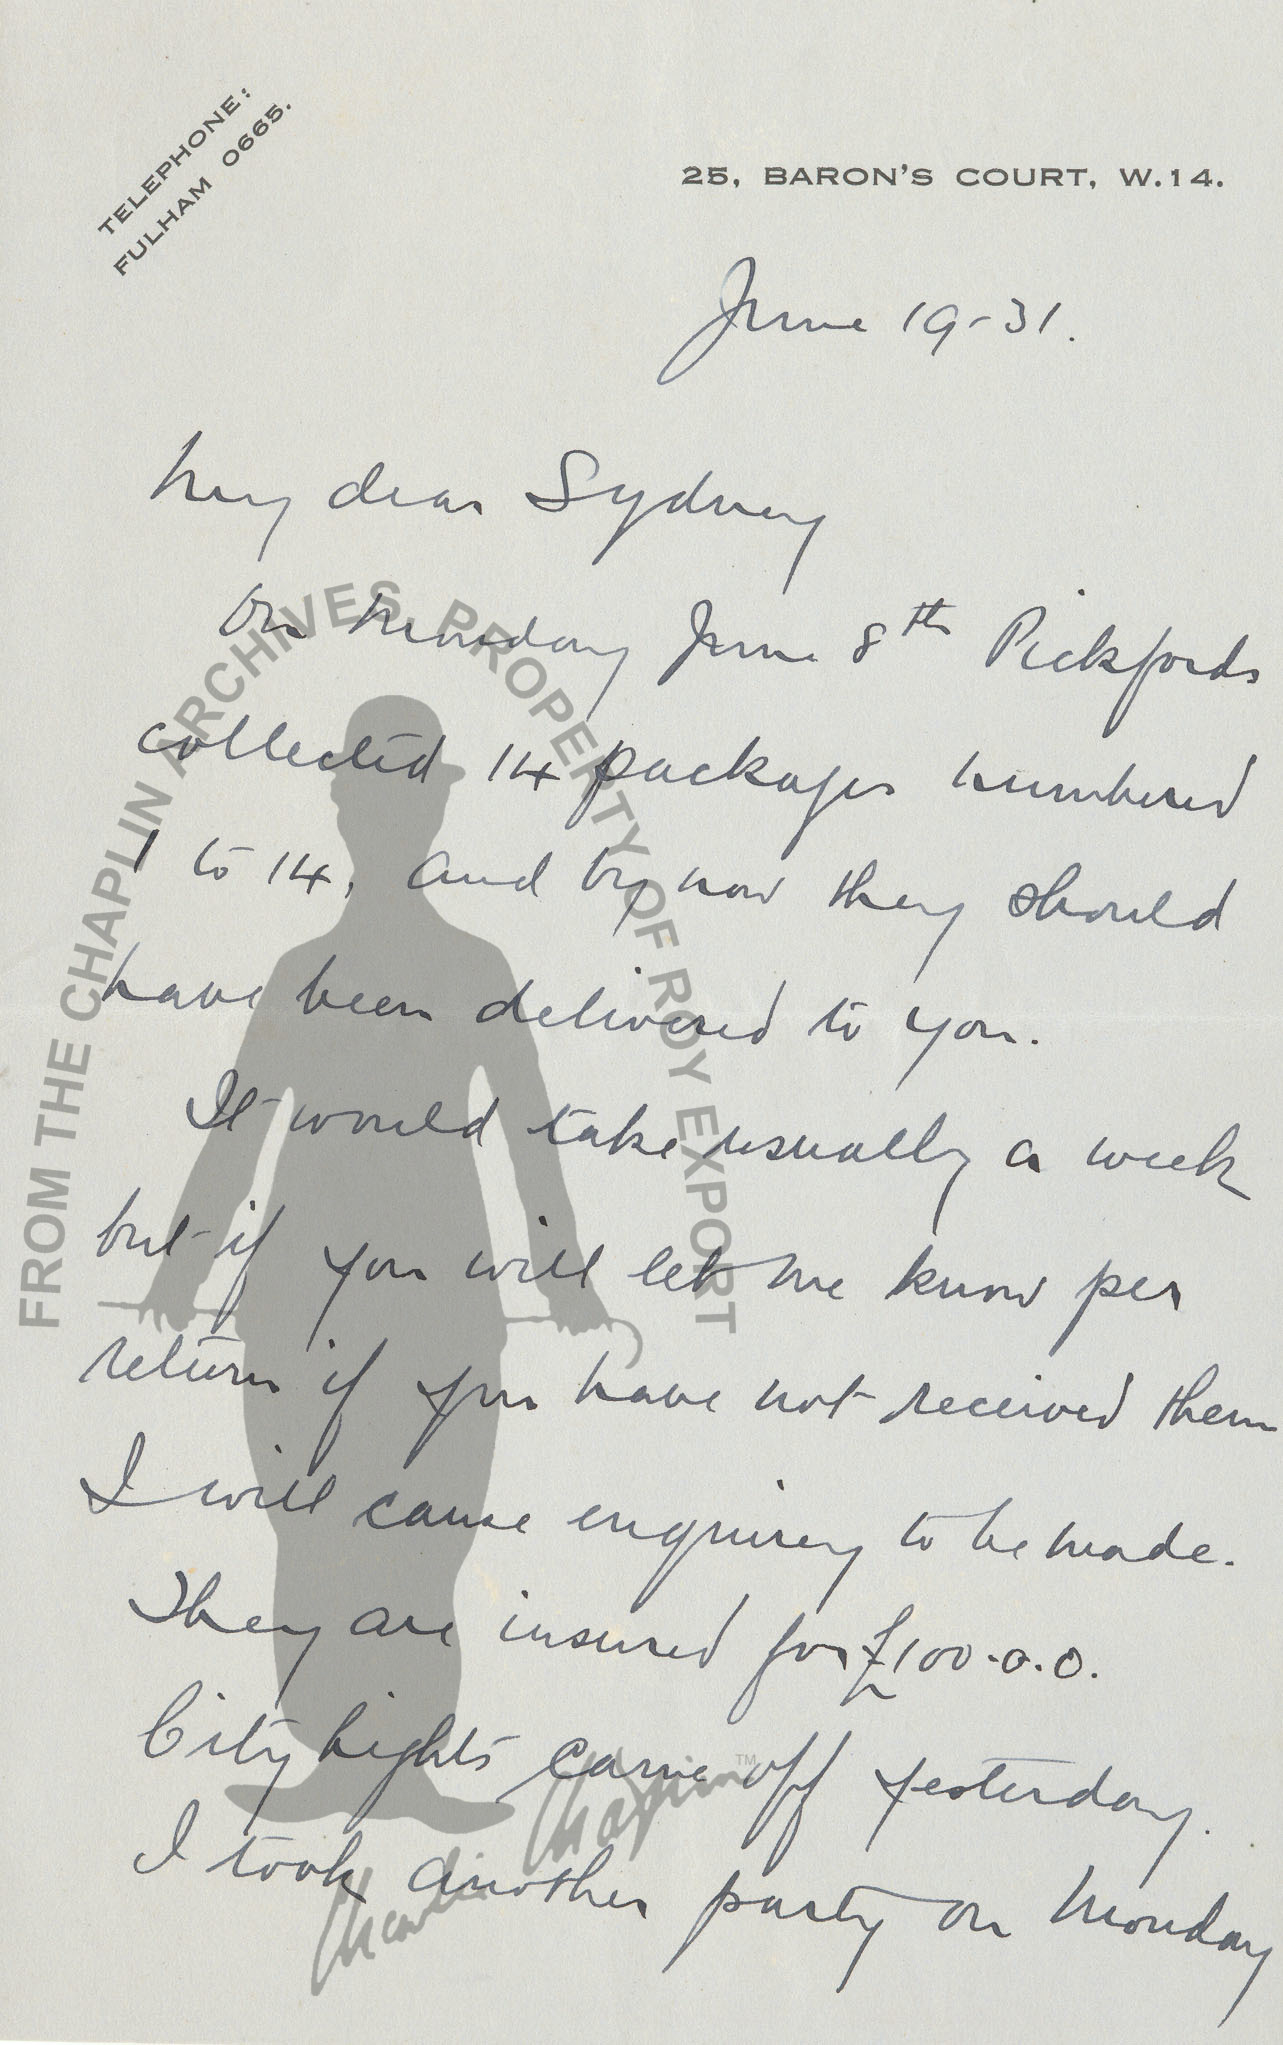 TELEPHONE:
FULHAM 0665.
25, BARON'S COURT, W.14.
June 19-31.
My dear Sydney
On Monday June 8th Pickfords
collected 14 packages numbered
1 to 14, and by now they should
have been delivered to you.
It would take usually a week
but if you will let me know per
return if you have not received them
I will cause enquiry to be made.
They are insured for £100.0.0.
City Lights came off yesterday.
I took another party on Monday
FROM THE CHAPLIN ARCHIVES PROPERTY OF ROY EXPORT
Charlie Chaplin™